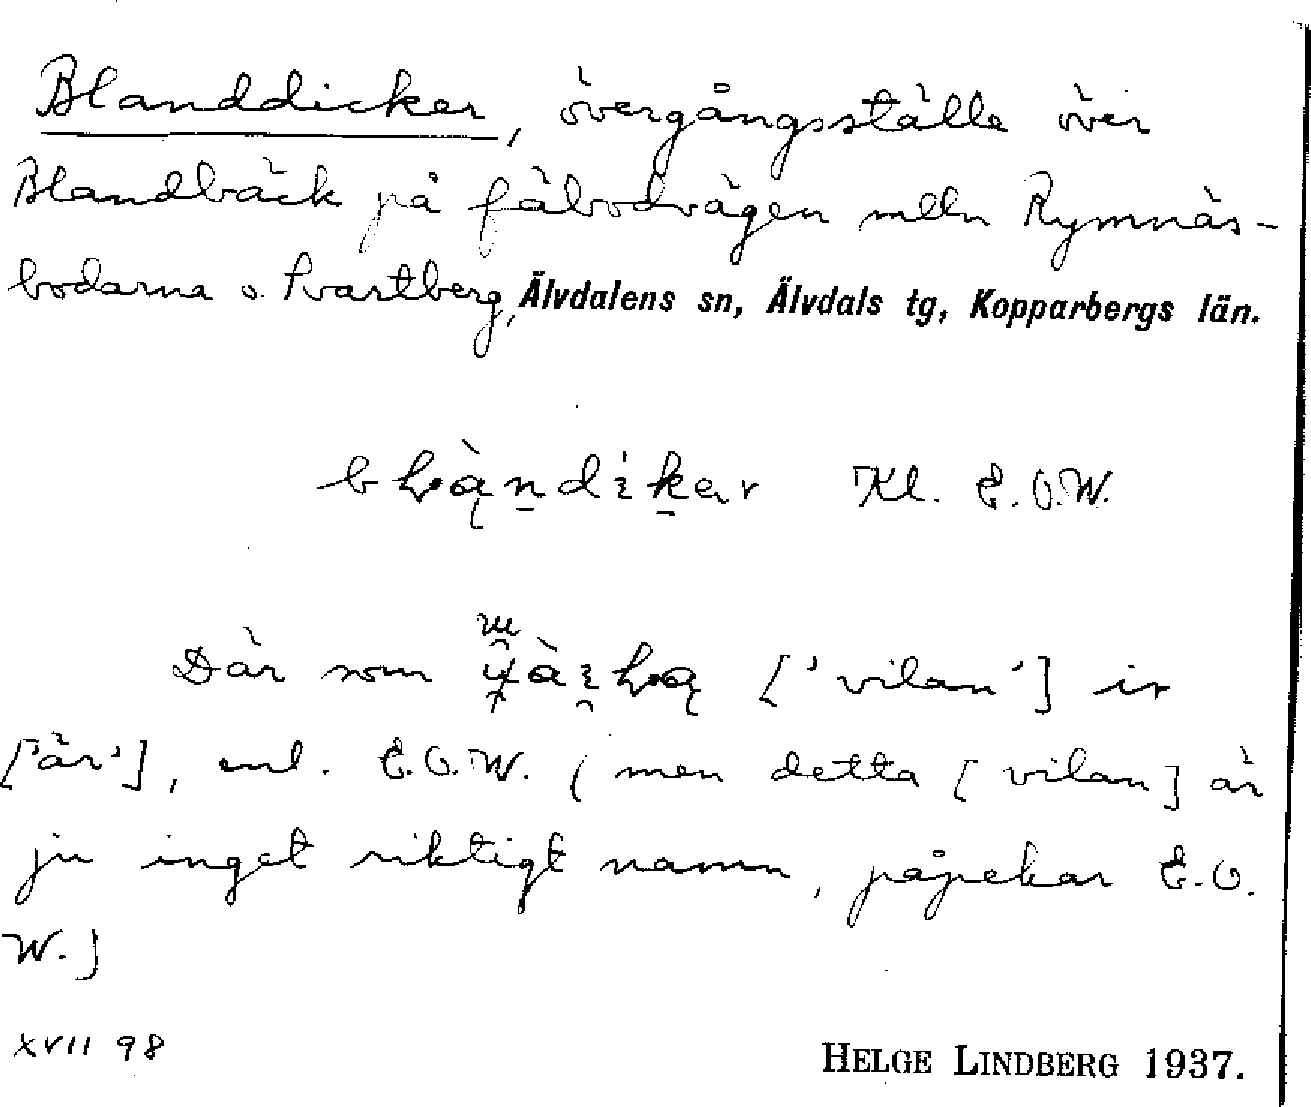 Blanddicker, övergångsställe över
Blandbäck på fäbodvägen melln Rymnäs-
bodarna o. Svartberg, Älvdalens sn, Älvdals tg, Kopparbergs län.
Kl. E.O.W.
Där som ['vilan'] ir
['är'], enl. E.O.W. (men detta [vilan] är
ju inget riktigt namn, påpekar E.O.
W.)
XVII 98
HELGE LINDBERG 1937.